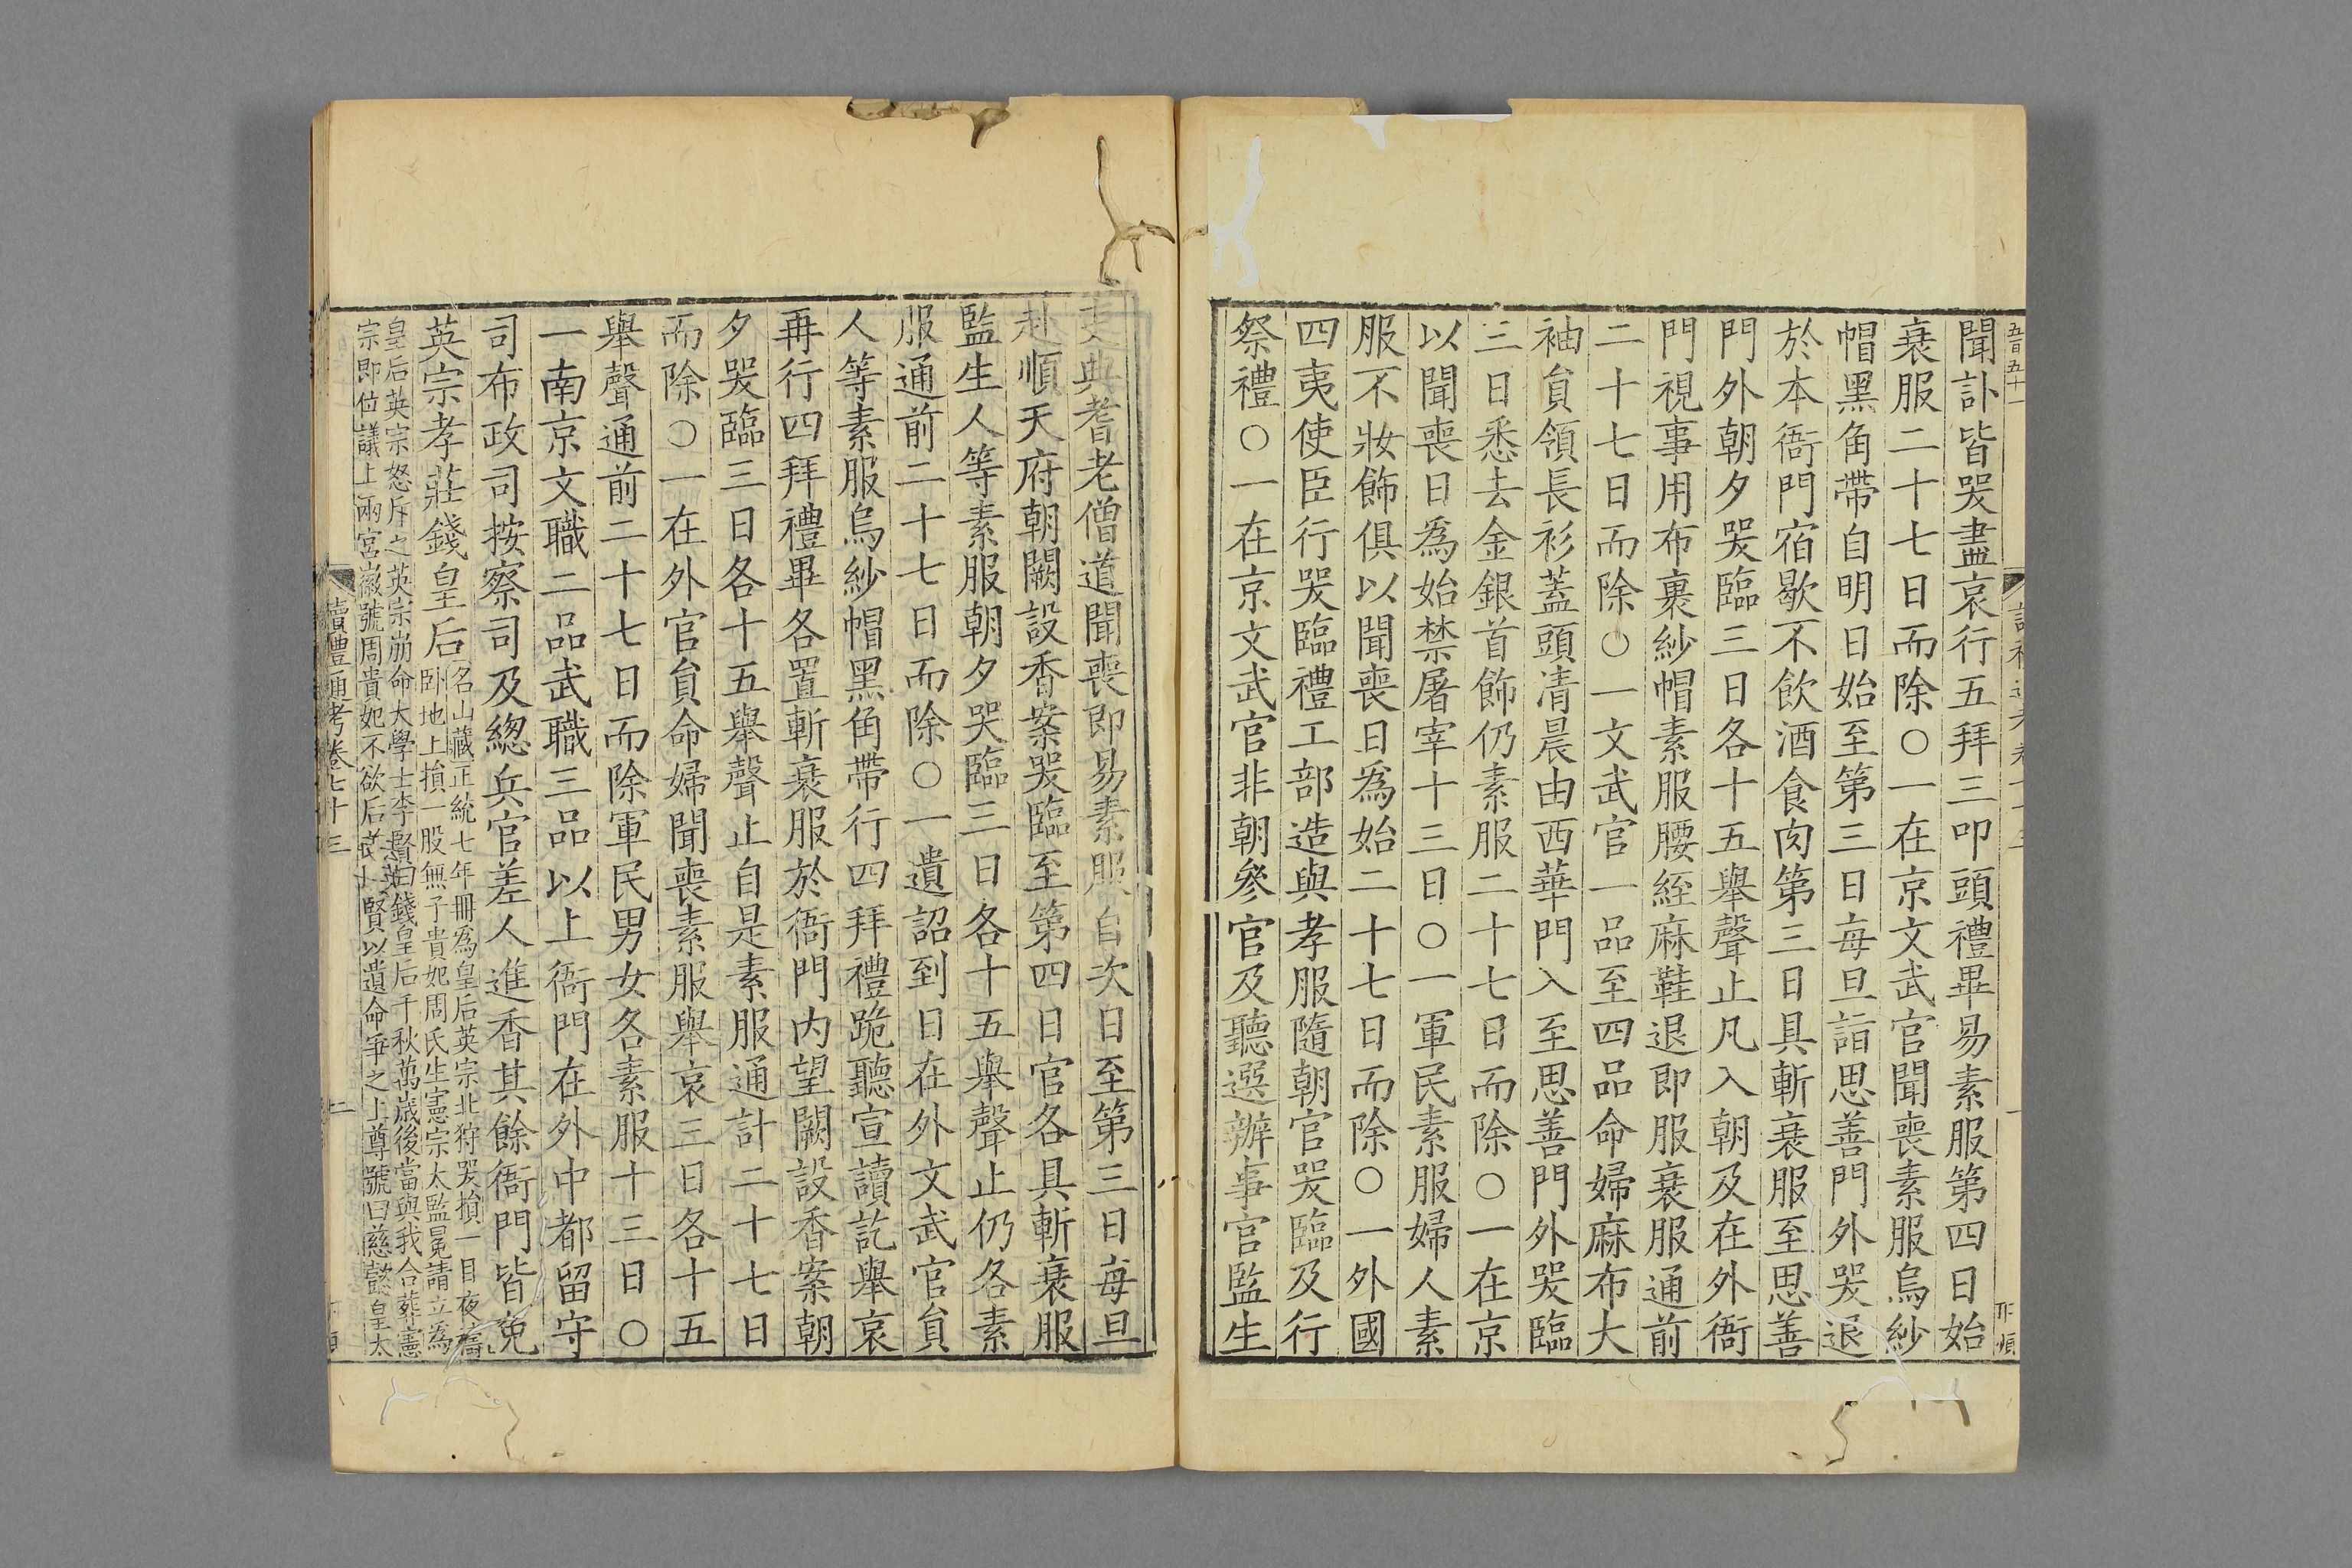 聞訃皆哭盡哀行五拜三叩頭禮畢易素服第四日始
衰服二十七日而除○一在京文武官聞喪素服烏紗
帽黑角帶自明日始至第三日每旦詣思善門外哭退
於本衙門宿歇不飲酒食肉第三日具斬衰服至思善
門外朝夕哭臨三日各十五舉聲止凡入朝及在外衙
門視事用布裹紗帽素服腰絰麻鞋退即服衰服通前
二十七日而除○一文武官一品至四品命婦麻布大
袖員領長衫蓋頭清晨由西華門入至思善門外哭臨
三日悉去金銀首飾仍素服二十七日而除○一在京
以聞喪日為始禁屠宰十三日○一軍民素服婦人素
服不妝飾俱以聞喪日為始二十七日而除○一外國
四夷使臣行哭臨禮工部造與孝服隨朝官哭臨及行
祭禮○一在京文武官非朝參官及聽選辦事官監生
吏典耆老僧道聞喪即易素服自次日至第三日每旦
赴順天府朝闕設香案哭臨至第四日官各具斬衰服
監生人等素服朝夕哭臨三日各十五舉聲止仍各素
服通前二十七日而除○一遺詔到日在外文武官員
人等素服烏紗帽黑角帶行四拜禮跪聽宣讀訖舉哀
再行四拜禮畢各置斬衰服於衙門内望闕設香案朝
夕哭臨三日各十五舉聲止自是素服通計二十七日
而除○一在外官員命婦聞喪素服舉哀三日各十五
舉聲通前二十七日而除軍民男女各素服十三日○
一南京文職二品武職三品以上衙門在外中都留守
司布政司按察司及總兵官差人進香其餘衙門皆免
英宗孝莊錢皇后
名山藏正統七年冊為皇后英宗北狩哭損一目夜禱
卧地上損一股無子貴妃周氏生憲宗太監冕請立為
皇后英宗怒斥之英宗崩命大學士李賢曰錢皇后千秋萬歲後當與我合葬憲
宗即位議上兩宮徽號周貴妃不欲后賢以遺命爭之上尊號曰慈懿皇太
讀禮通考卷七十三
二